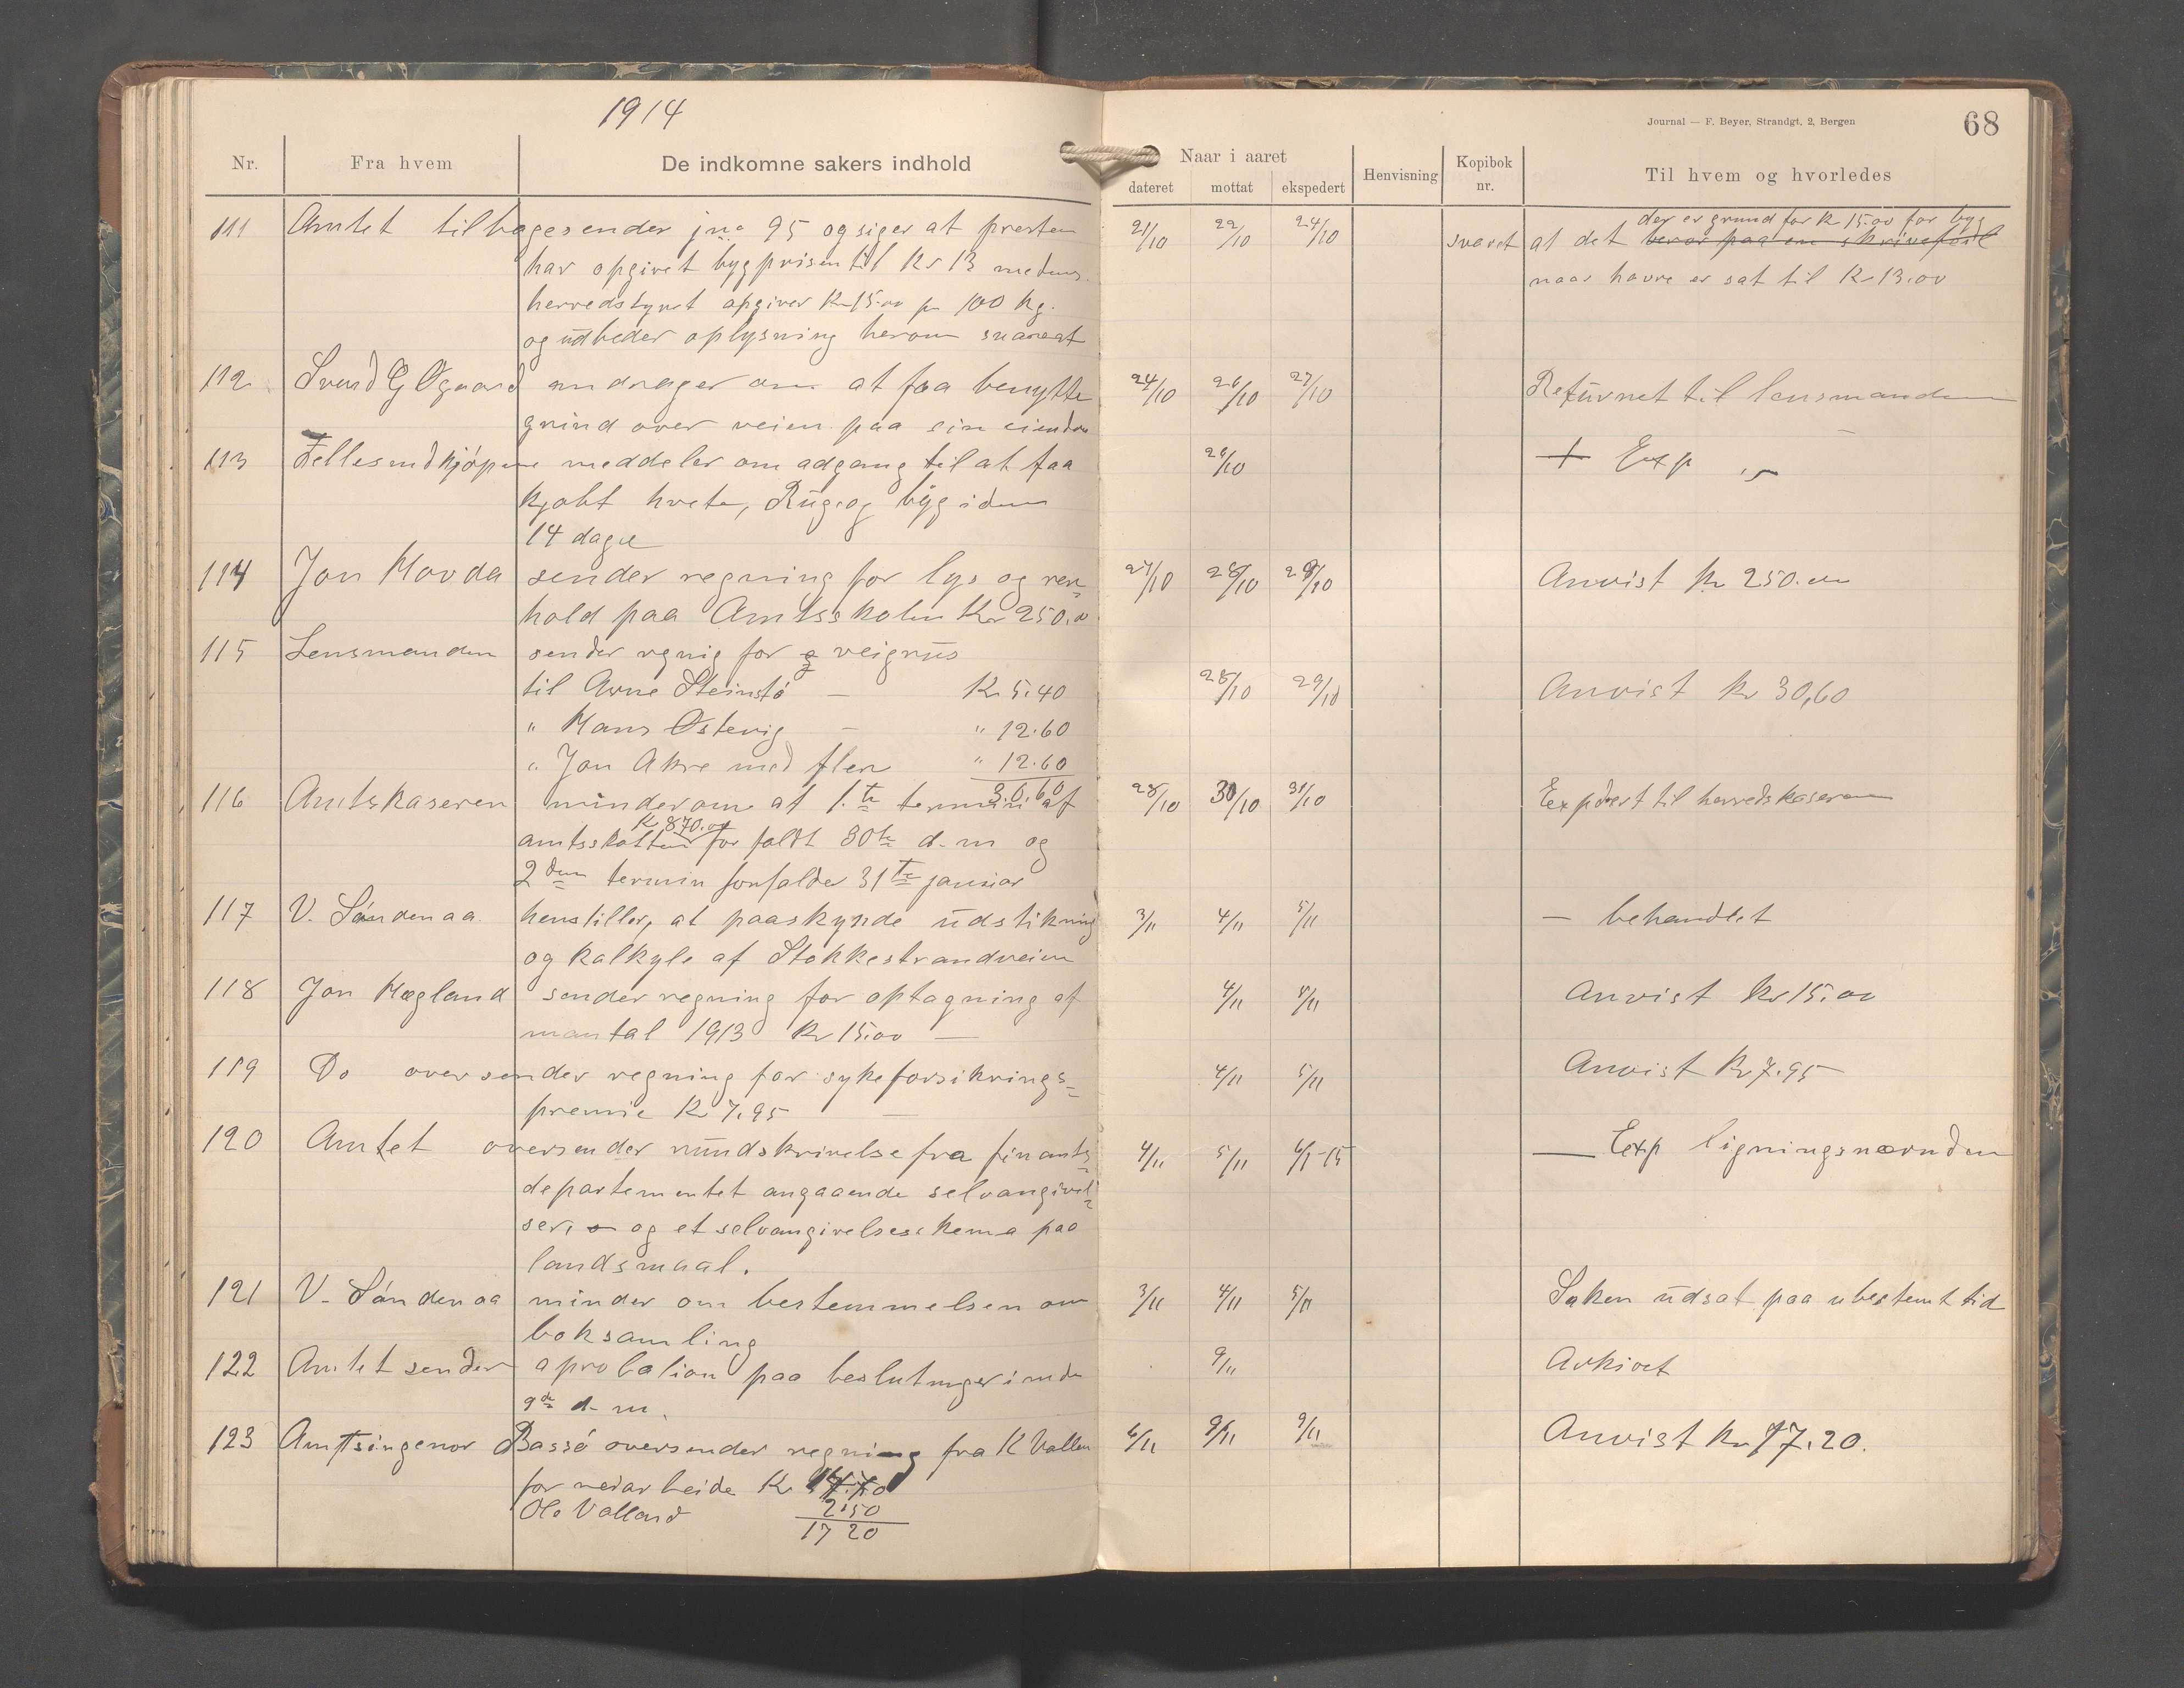 1914
Journal — F. Beyer, Strandgt. 2, Bergen
68
Nr. Fra hvem De indkomne sakers indhold Naar i aaret dateret mottat ekspedert Henvisning Kopibok nr. Til hvem og hvorledes
111 Amtet tilbagesender jno 95 og siger at presten 21/10 22/10 24/10 svaret at det beror paa en skrivefeil
der er grund for Kr 15.00 for byg
har opgivet bygprisen til Kr 13 medens naar havre er sat til Kr 13.00
herredstyret opgiver Kr 15.00 pr 100 kg.
og udbeder oplysning herom
112 Svend G Øgaard andrager om at faa benytte 24/10 26/10 27/10 Returnet til lensmanden
grind over veien paa sin eiendom
113 Fellesindkjøpene meddeler om adgang til at faa 26/10 + Exp
kjøbt hvete, Rug og byg iden
14 dage
114 Jon Hovda sender regning for lys og ren= 27/10 28/10 29/10 Anvist Kr 250.00
hold paa Amtsskolen Kr 250.00
115 Lensmanden sender regnig for veigrus
til Arne Steinstø — Kr 5.40 28/10 29/10 Anvist Kr 30,60
" Hans Østevig — " 12.60
" Jon Akre med flere " 12.60
30.60
116 Amtskaseren minder om at 1.te termin af 28/10 30/10 31/10 Expdert til herredskaseren
Kr 870.00
amtsskatten forfaldt 30te d.m og
2den termin forfalder 31te januar
117 V. Søndenaa henstiller, at paaskynde udstikning 3/11 4/11 5/11 — behandlet
og kalkyle af Stokkestrandveien
118 Jon Hegland sender regning for optagning af 4/11 5/11 Anvist Kr 15.00
mantal 1913 Kr 15.00 —
119 Do oversender regning for sykeforsikrings= 4/11 5/11 Anvist Kr 7.95
premie Kr 7.95 —
120 Amtet oversender rundskrivelse fra finants= 4/11 5/11 4/1-15 — Exp ligningsnævnden
departementet angaaende selvangivel=
ser, og et selvangivelsesskema paa
landsmaal.
121 V. Søndenaa minder om bestemmelsen om 3/11 4/11 5/11 Saken udsat paa ubestemt tid
boksamling
122 Amtet sender aprobation paa beslutninger 9/11 Arkivet
9de d.m.
123 Amtsingenør Bassø oversender regning fra K Vallen 6/11 9/11 9/11 Anvist Kr 17.20.
for veiarbeide Kr 14.70
Ole Valland 2.50
17 20